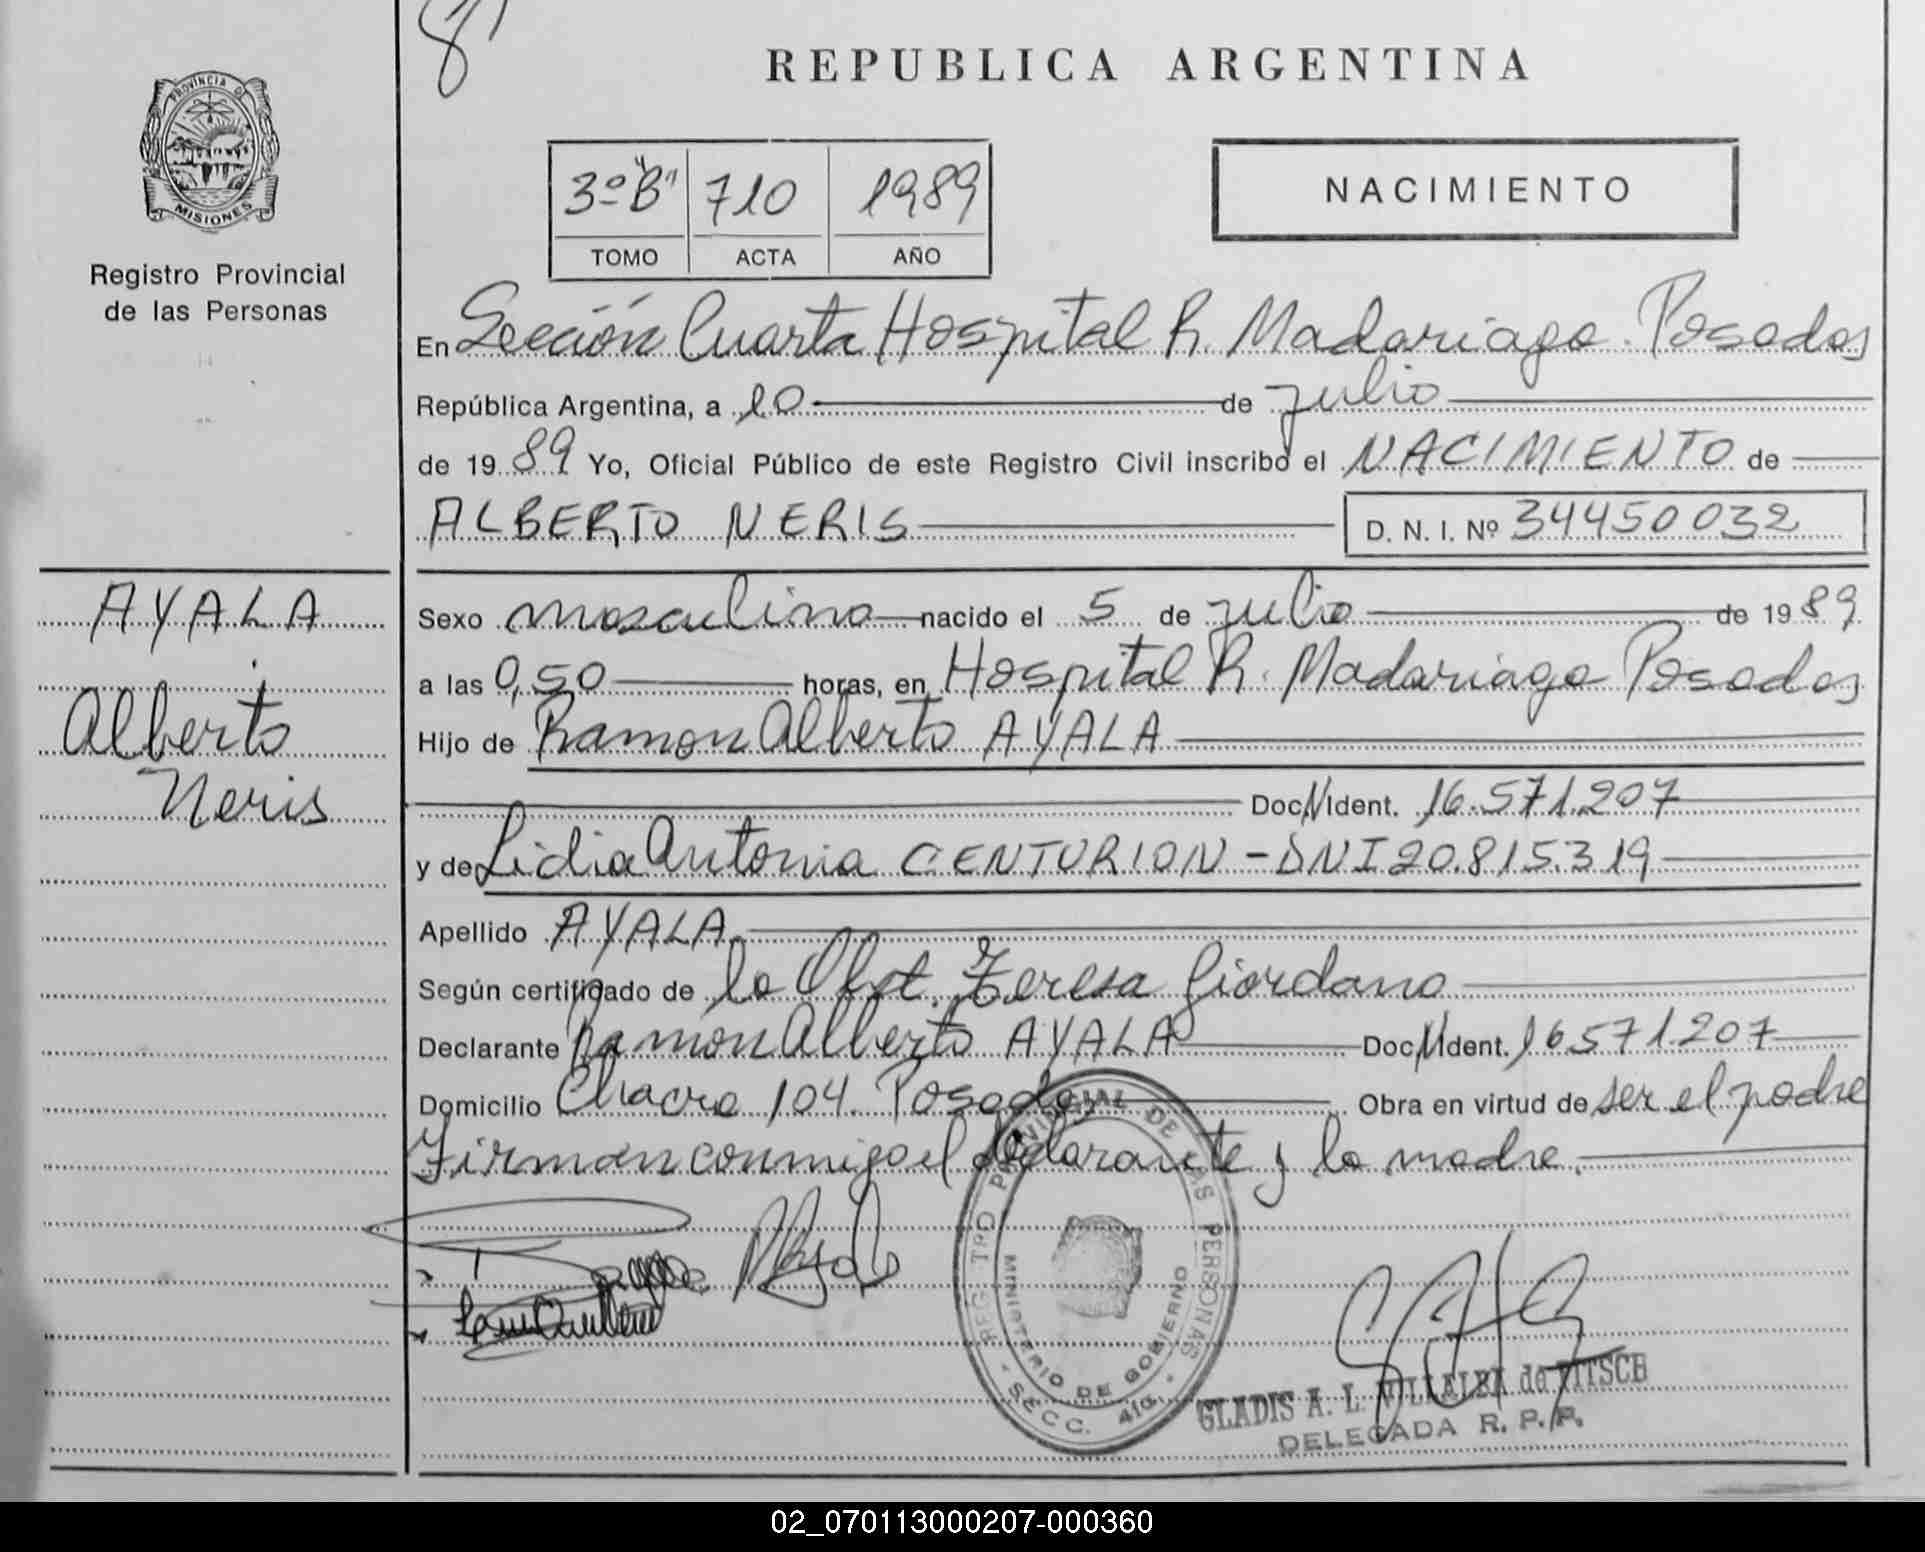 8
REPUBLICA ARGENTINA
PROVINCIA DE
MISIONES
Registro Provincial
de las Personas
3º "B" 710 1989
TOMO ACTA AÑO
NACIMIENTO
En Sección Cuarta Hospital R. Madariaga. Posadas
República Argentina, a 10 de julio
de 1989 Yo, Oficial Público de este Registro Civil inscribo el NACIMIENTO de
ALBERTO NERIS D. N. I. Nº 34450032
AYALA
Alberto
Neris
Sexo masculino nacido el 5 de julio de 1989
a las 0,50 horas, en Hospital R. Madariaga Posadas
Hijo de Ramon Alberto AYALA
Doc. Ident. 16.571.207
y de Lidia Antonia CENTURION - DNI 20.815.319
Apellido AYALA
Según certificado de la Obst. Teresa Giordano
Declarante Ramon Alberto AYALA Doc. Ident. 16571207
Domicilio Chacra 104. Posadas Obra en virtud de ser el padre
Firman conmigo el declarante y la madre.
REGISTRO PROVINCIAL DE LAS PERSONAS
MINISTERIO DE GOBIERNO
- SECC. 4ta. -
GLADIS A. L. VILLALBA de
DELEGADA R. P. P.
02_070113000207-000360